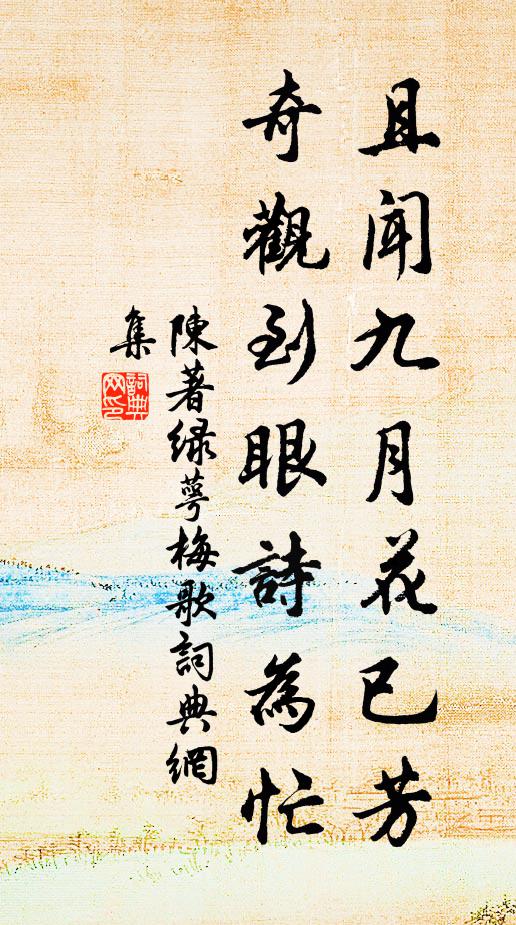 且聞九月花已芳
奇觀到眼詩為忙
陳著綠萼梅歌詞典網
集
詞典
网印